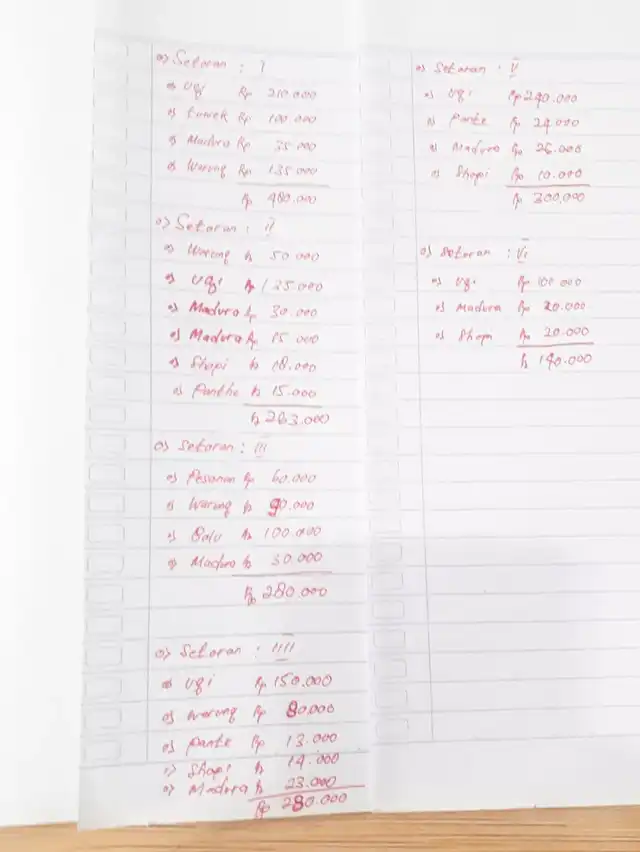 Setoran : I
Ugi Rp 210.000
Luwek Rp 100.000
Madura Rp 35.000
Warung Rp 135.000
Rp 480.000
Setoran : II
Warung Rp 50.000
Ugi Rp 135.000
Madura Rp 30.000
Madura Rp 15.000
Shopi Rp 18.000
Panthe Rp 15.000
Rp 263.000
Setoran : III
Pesanan Rp 60.000
Warung Rp 90.000
Balu Rp 100.000
Madura Rp 30.000
Rp 280.000
Setoran : IIII
Ugi Rp 150.000
Warung Rp 80.000
Pante Rp 13.000
Shopi Rp 14.000
Madura Rp 23.000
Rp 280.000
Setoran : V
Ugi Rp 240.000
Pante Rp 24.000
Madura Rp 26.000
Shopi Rp 10.000
Rp 300.000
Setoran : VI
Ugi Rp 100.000
Madura Rp 20.000
Shopi Rp 20.000
Rp 140.000